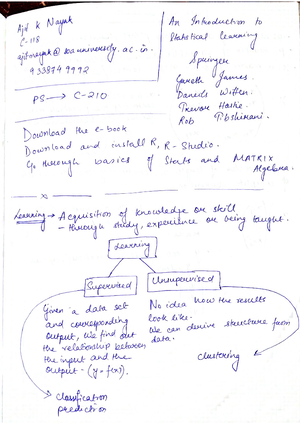 Ajit K Nayak
C-118
ajitnayak@soauniversity.ac.in
9338749992
PS → C-210
An Introduction to
Statistical Learning
Springer
Gareth James.
Daniela Witten.
Trevor Hastie.
Rob Tibshirani.
Download the e-book
Download and install R, R-Studio.
Go through basics of Stats and MATRIX
Algebra.
Learning → Acquisition of knowledge or skill
- through study, experience or being taught.
Learning
Supervised
Unsupervised
Given a data set
and corresponding
output, we find out
the relationship between
the input and the
output - (y = f(x)).
Classification
prediction
No idea how the results
look like.
We can derive structure from
data.
clustering